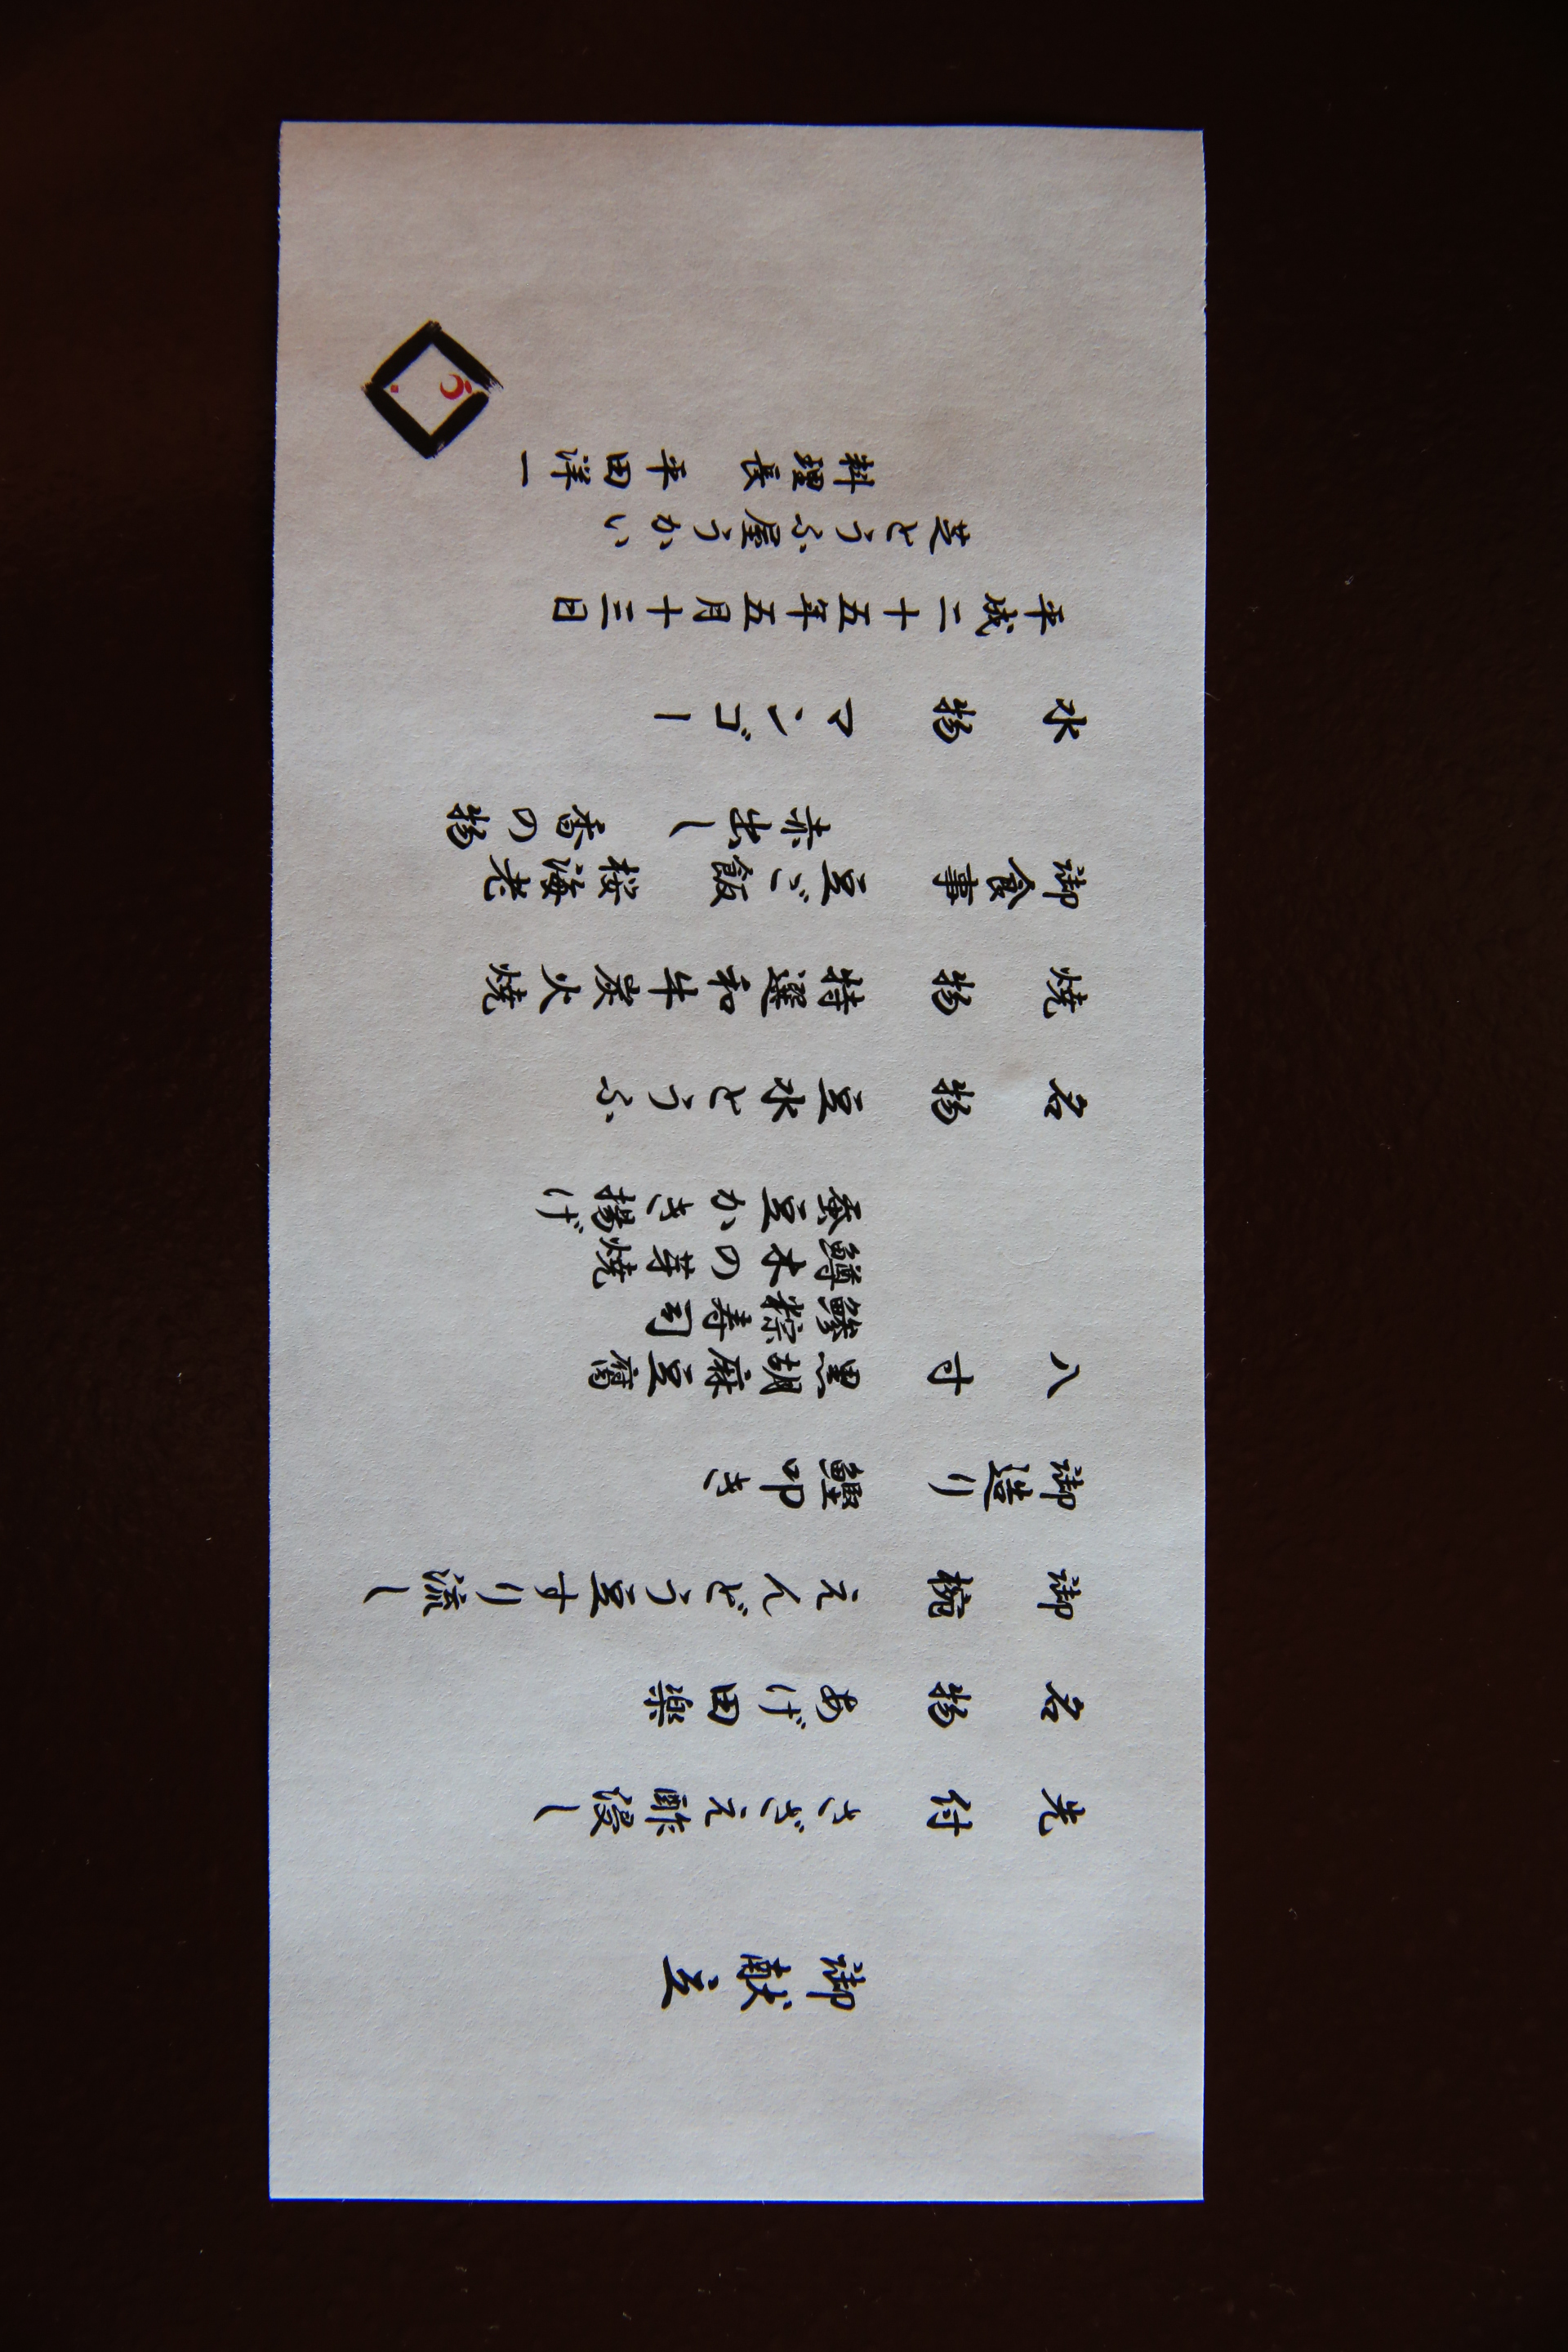 御献立
先付 さざえ酢浸し
名物 あげ田楽
御椀 えんどう豆すり流し
御造り 鰹叩き
八寸 黒胡麻豆腐
鯵粽寿司
鱒木の芽焼
蚕豆かき揚げ
名物 豆水とうふ
焼物 特選和牛炭火焼
御食事 豆ご飯 桜海老
赤出し 香の物
水物 マンゴー
平成二十五年五月十三日
芝とうふ屋うかい
料理長 平田洋一